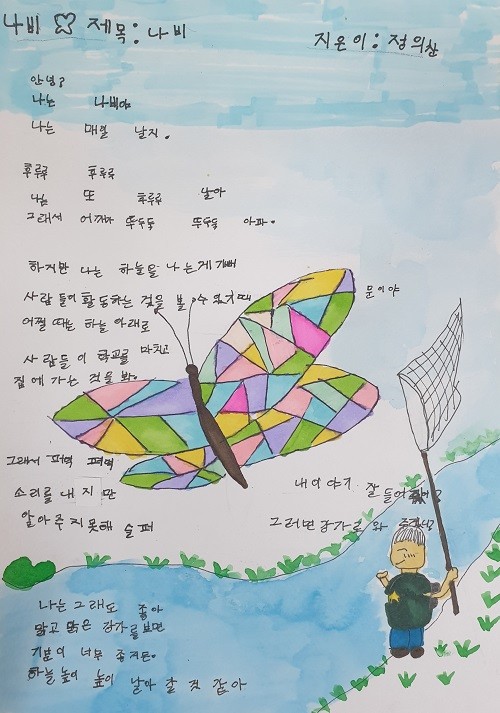 나비 제목: 나비
지은이: 정의산
안녕?
나는 나비야
나는 매일 날지.
후루루 후루루
나는 또 후루루 날아
그래서 어깨가 뚜두둑 뚜두둑 아파.
하지만 나는 하늘을 나는게 기뻐
사람들이 활동하는 것을 볼 수 있기때
문이야
어쩔 때는 하늘 아래로
사람들이 학교를 마치고
집에 가는 것을 봐.
그래서 펴덕 펴덕
소리를 내지만
알아주지 못해 슬퍼
내 이야기 잘 들어
그러면 강가로 와
나는 그래도 좋아
맑고 맑은 강가를 보면
기분이 너무 좋거든.
하늘 높이 높이 날아 갈 것 같아